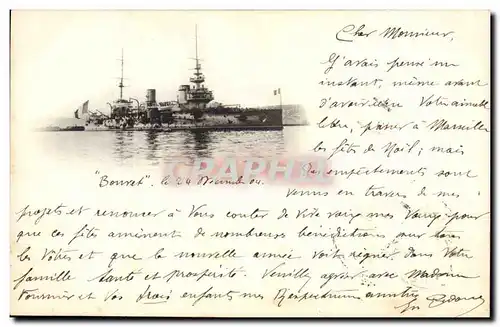 Cher Monsieur,
J'avais pensé un
instant, même avant
d'avoir Votre aimable
passer à Marseille
les fêtes de Noël; mais
empêchements sont
"Bouvet". le 24 Décembre 04.
venus en travers de mes
projets et renoncer à Vous conter de vive voix mes Vœux pour
que ces fêtes amènent de nombreuses bénédictions sur tous
les Vôtres et que la nouvelle année voit régner dans Votre
famille santé et prospérité. Veuillez agréer avec Madame
Fournier et Vos enfants mes respectueux